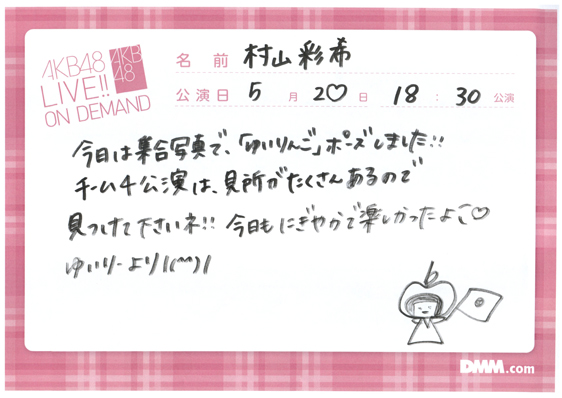 AKB48
LIVE!!
ON DEMAND
AKB
48
名前 村山彩希
公演日 5月20日 18:30公演
今日は集合写真で、「ゆいりんご」ポーズしました!!
チーム4公演は、見所がたくさんあるので
見つけて下さいネ!! 今日もにぎやかで楽しかったよ♡
ゆいりーより!(^^)!
DMM.com